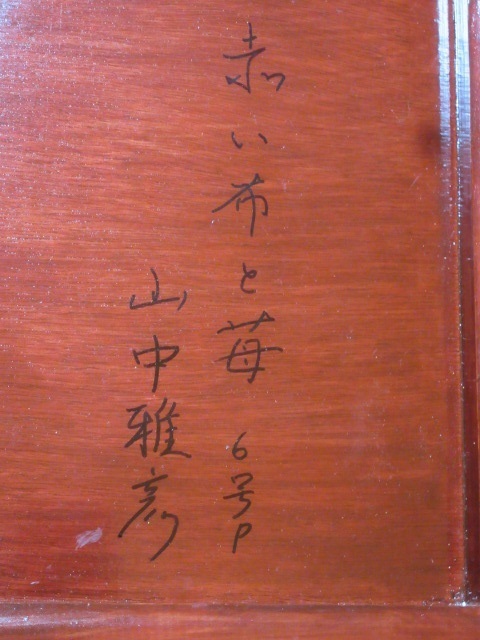 赤い布と苺 6号P
山中雅彦